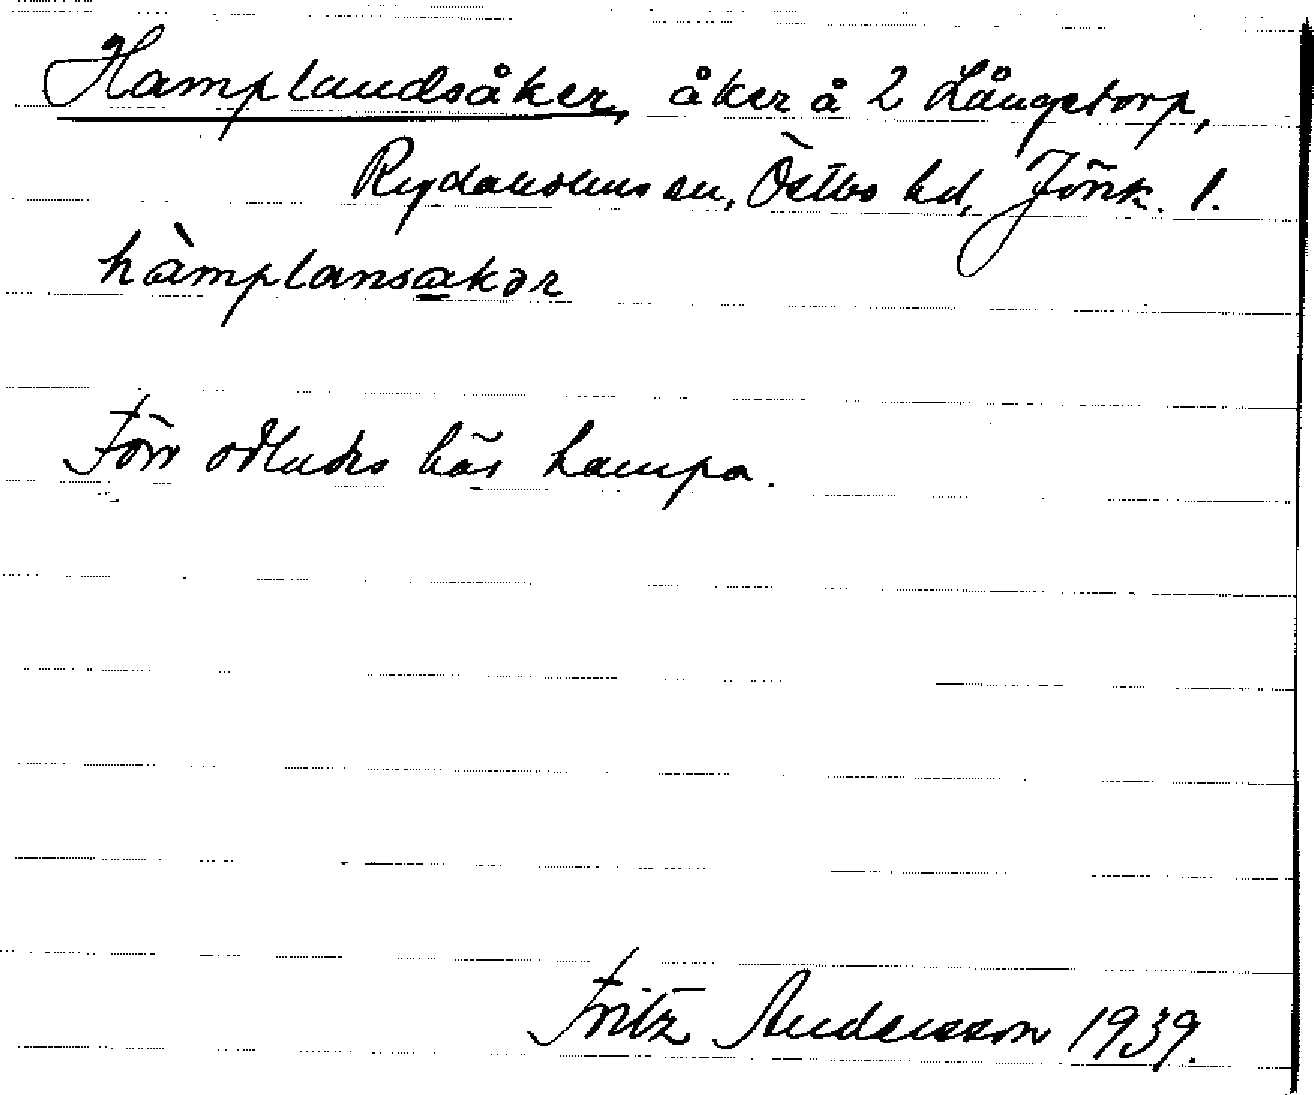 Hamplandsåker, åker å 2 Långetorp,
Rydaholms sn, Östbo hd, Jönk. l.
hàmplansakər
Förr odlades här hampa.
Fritz Andersson 1939.